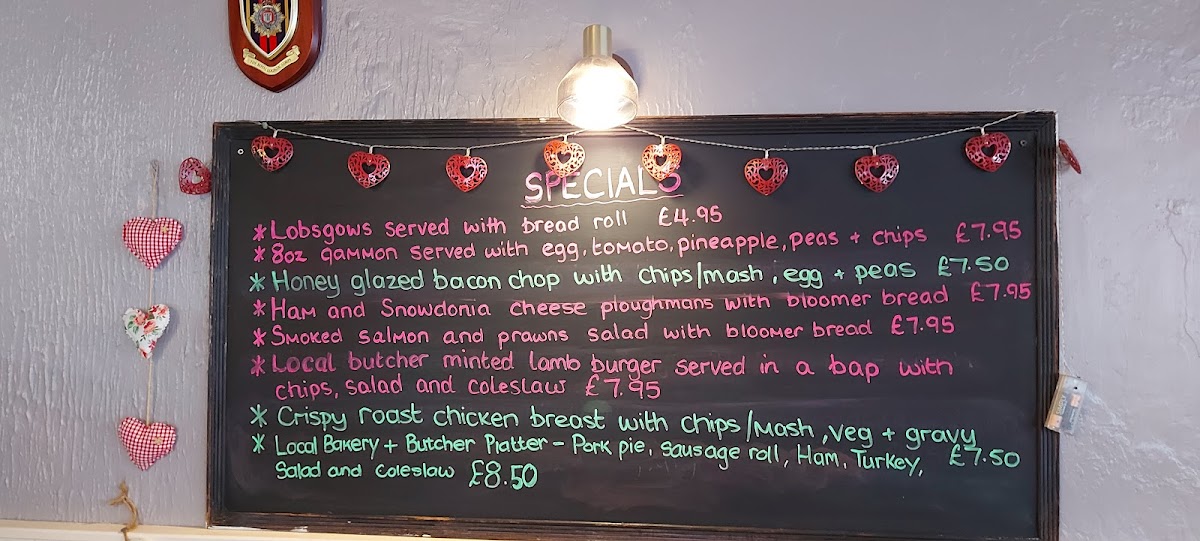 SPECIALS
* Lobsgows served with bread roll £4.95
* 8oz gammon served with egg, tomato, pineapple, peas + chips £7.95
* Honey glazed bacon chop with chips/mash, egg + peas £7.50
* Ham and Snowdonia cheese ploughmans with bloomer bread £7.95
* Smoked salmon and prawns salad with bloomer bread £7.95
* Local butcher minted lamb burger served in a bap with
chips, salad and coleslaw £7.95
* Crispy roast chicken breast with chips/mash, veg + gravy
£7.50
* Local Bakery + Butcher Platter - Pork pie, sausage roll, Ham, Turkey,
Salad and coleslaw £8.50